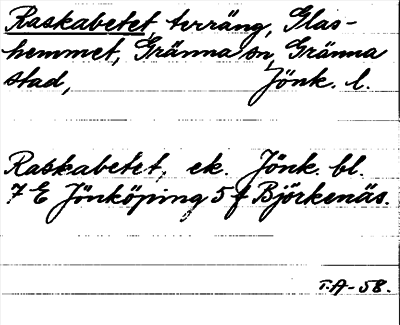 Raskabetet, terräng, Glas-
hemmet, Gränna sn, Gränna
stad, Jönk. l.
Raskabetet, ek. Jönk. bl.
7 E Jönköping 5 f Björkenäs.
T.A-58.